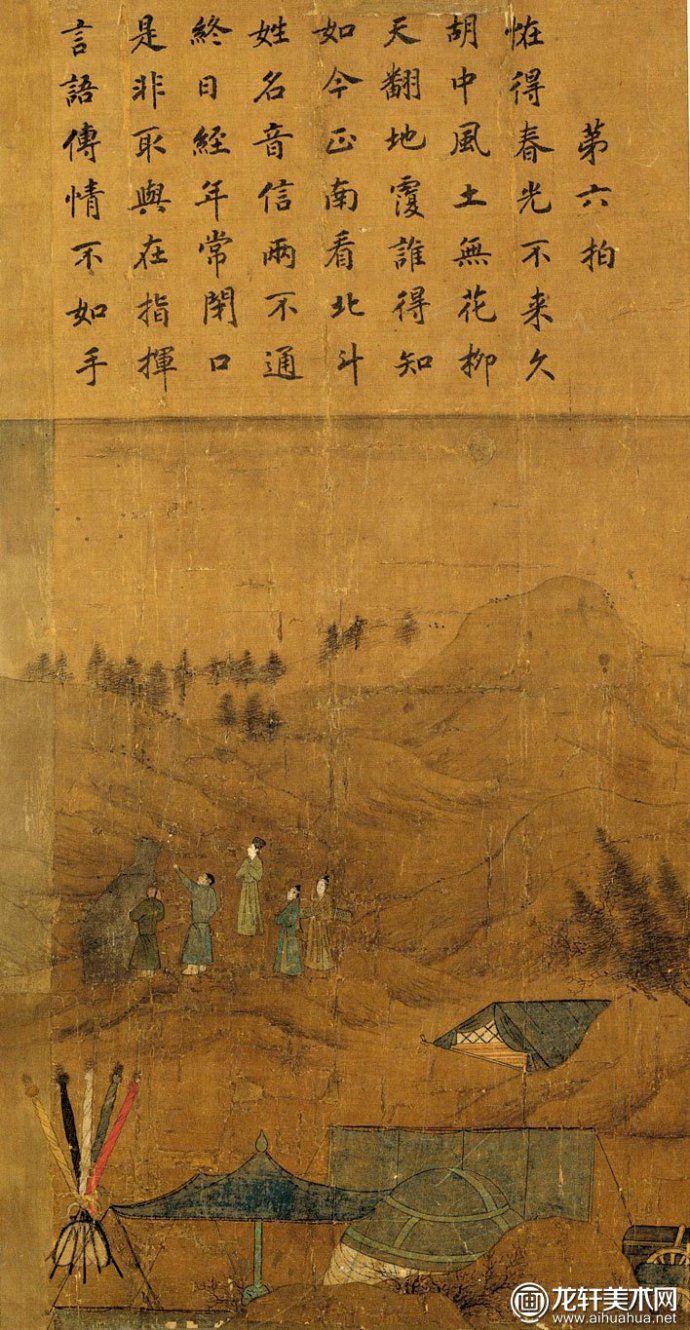 第六拍
恠得春光不来久
胡中風土無花柳
天翻地覆誰得知
如今正南看北斗
姓名音信兩不通
終日經年常閉口
是非取與在指揮
言語傳情不如手
画 龙轩美术网
www.aihuahua.net